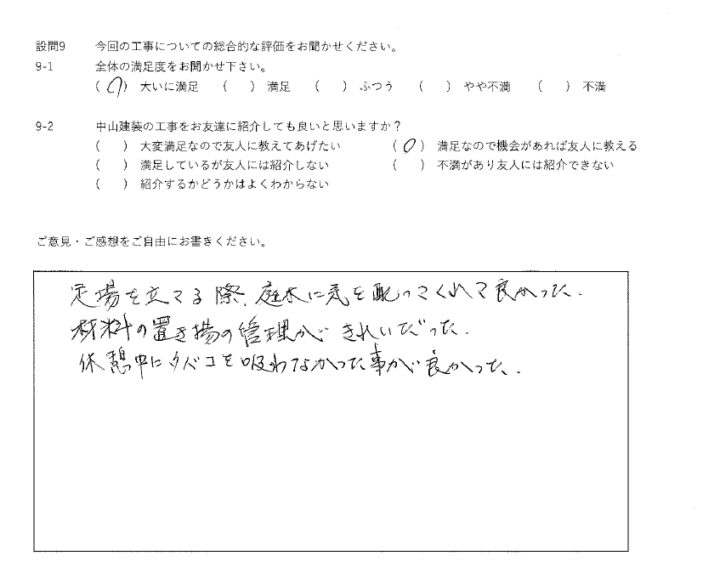 設問9 今回の工事についての総合的な評価をお聞かせください。
9-1 全体の満足度をお聞かせ下さい。
(○) 大いに満足 ( ) 満足 ( ) ふつう ( ) やや不満 ( ) 不満
9-2 中山建装の工事をお友達に紹介しても良いと思いますか？
( ) 大変満足なので友人に教えてあげたい (○) 満足なので機会があれば友人に教える
( ) 満足しているが友人には紹介しない ( ) 不満があり友人には紹介できない
( ) 紹介するかどうかはよくわからない
ご意見・ご感想をご自由にお書きください。
足場を立てる際、庭木に気を配ってくれて良かった．
材料の置き場の管理が きれいだった．
休憩中にタバコを吸わなかった事が良かった．